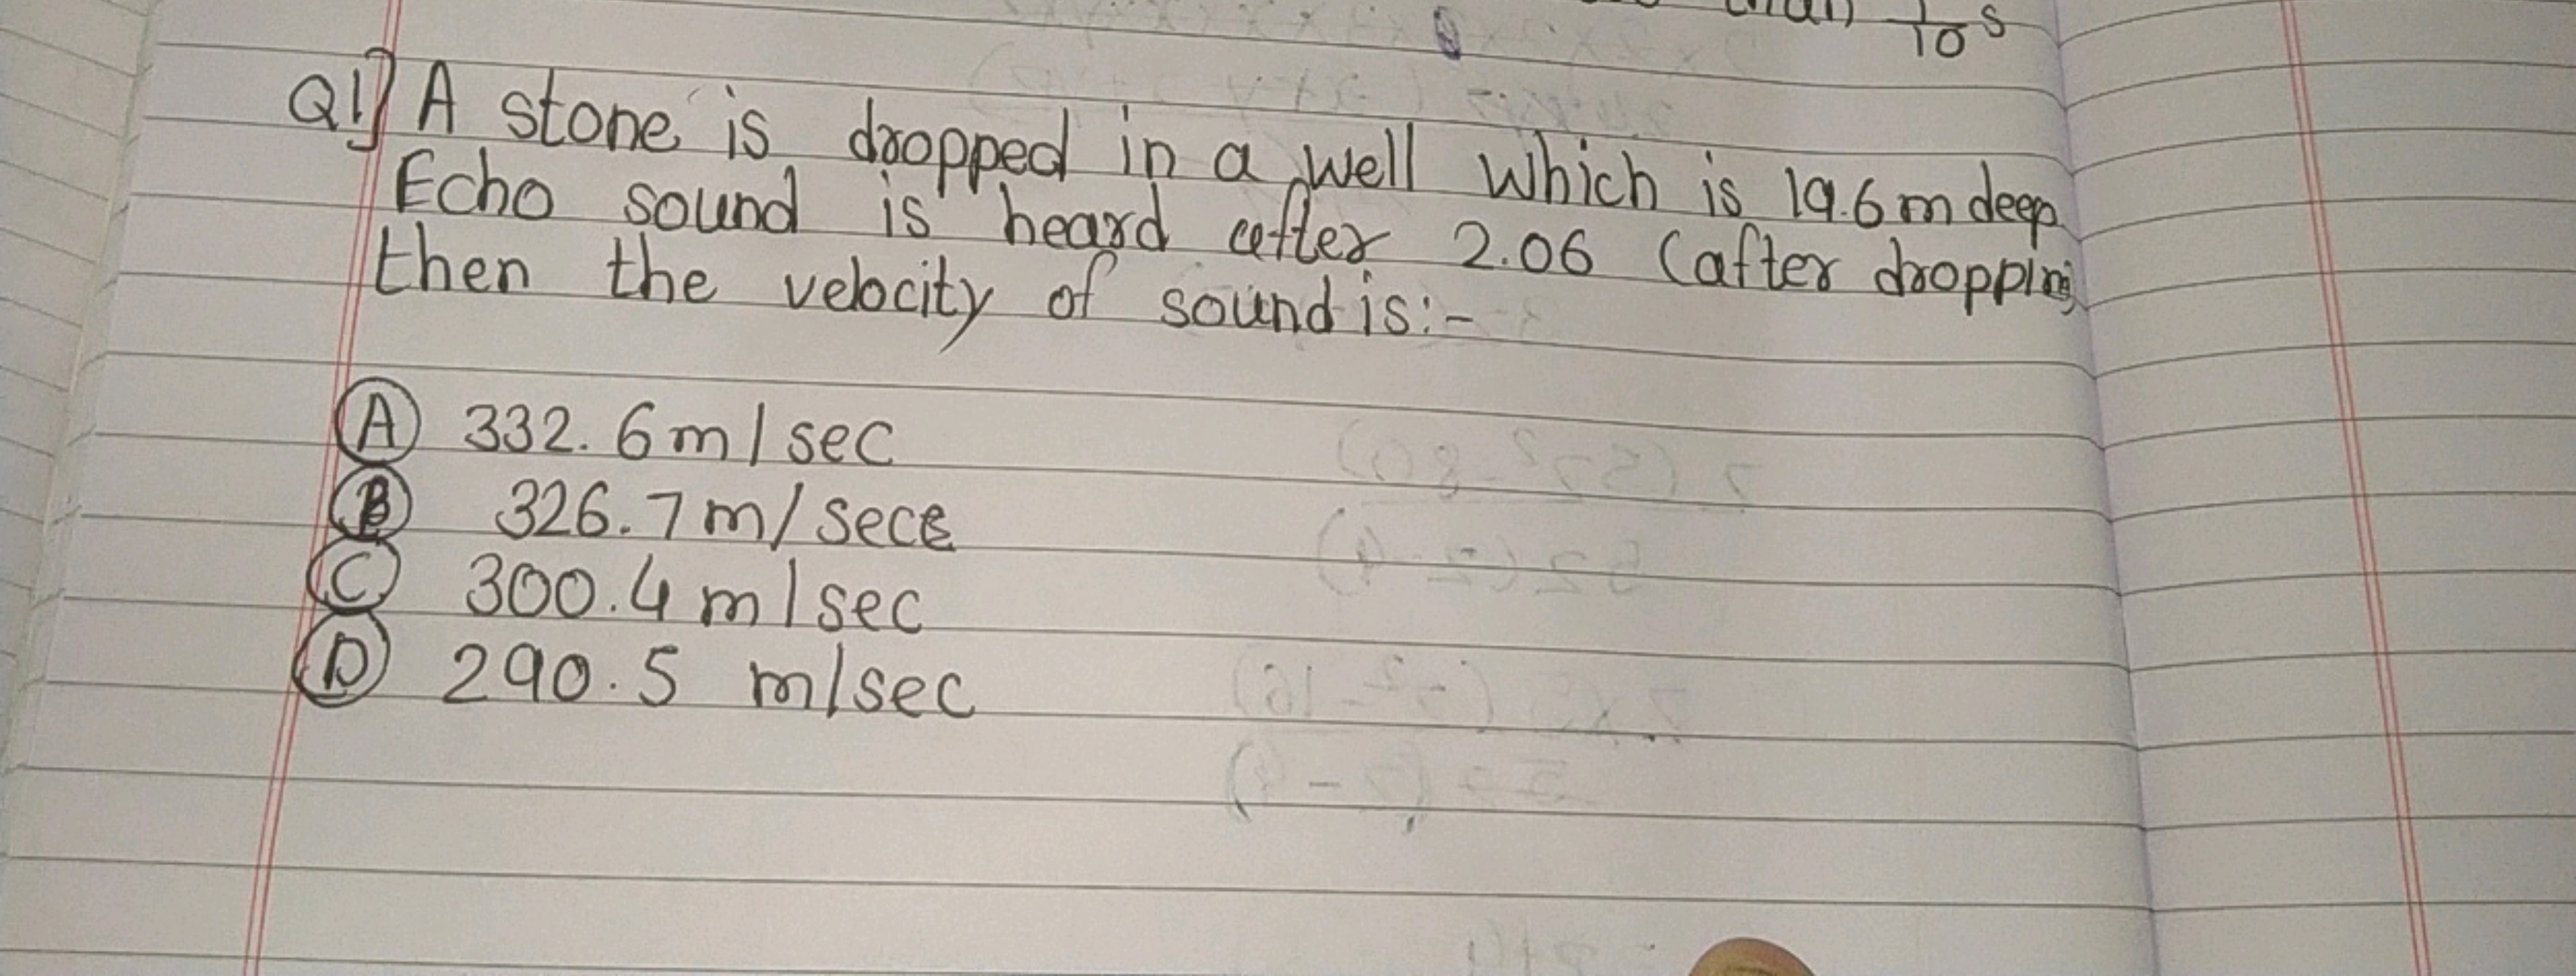 1/10 s
Q1] A stone is dropped in a well which is 19.6m deep
Echo sound is heard after 2.06 (after dropping
then the velocity of sound is:-
A 332.6m/sec
B 326.7m/sec
C 300.4m/sec
D 290.5 m/sec